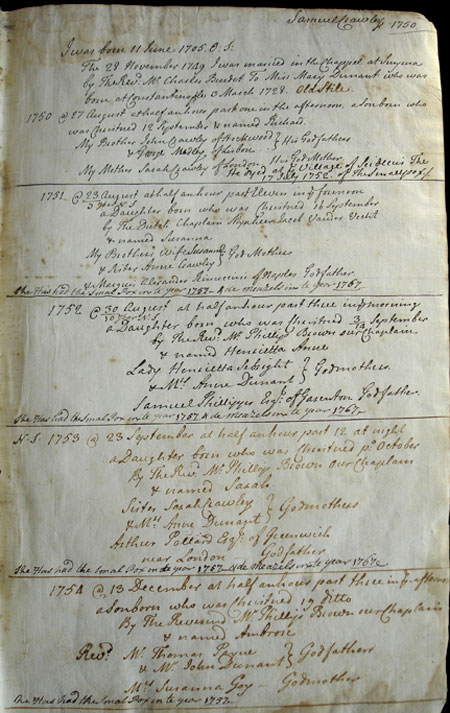 Samuel Crawley 1750
I was born 11 June 1705. O: S:
The 28 November 1749 I was married in the Chappel at Smyrna
by The Revd. Mr. Charles Burdet To Miss Mary Dunant who was
born at Constantinople March 1728. Old Stile
1750 @ 27 August at half an hour past one in the afternoon, a Son born who
was Christned 12 September & named Richard.
My Brother John Crawley of Stockwood
& George Medley of
His Godfathers
My Mother Sarah Crawley of London. His God Mother
He dyed at Village of Sedicui The
17 July 1752. of The Small pox
1751 @ 23 August at half an hour past Eleven in ye forenoon
a Daughter born who was Christned September
by The Dutch Chaplain Jacob Vander Vecht
& named Susanna
My Brothers Wife Susanna
& Sister Anne Crawley
God Mothers
& Marquis Alexander of Naples Godfather.
She Has had the Small Pox in ye year 1757 & de meazels in te year 1767
1752 @ 30 August at half an hour past three in ye morning
a Daughter born who was Christned September
by The Revd. Mr. Phillips Brown our Chaplain
& named Henrietta Anne
Lady Henrietta Sebright
& Mrs. Anne Dunant
Godmothers.
Samuel Phillipps Esqr. of Garendon Godfather.
She Has had the Small Pox in te year 1757 & de meazels in te year 1767
N. S. 1753 @ 23 September at half an hour past 12 at night
a Daughter born who was Christned po. October
By The Revd. Mr. Phillips Brown our Chaplain
& named Sarah
Sister Sarah Crawley
& Mrs. Anne Dunant
Godmothers
Arthur Pollard Esqr. of Greenwich
near London Godfather
She Has had the Small Pox in de year 1757 & de meazels in te year 1767
1754 @ 13 December at half an hour past three in ye afternoon
a Son born who was Christned 19 ditto
By The Reverend Mr. Phillips Brown our Chaplain
& named Ambrose
Revd. Mr. Thomas Payne
& Mr. John Dunant
Godfathers
Mrs. Susanna Godmother
Has had the Small Pox in te year 1757